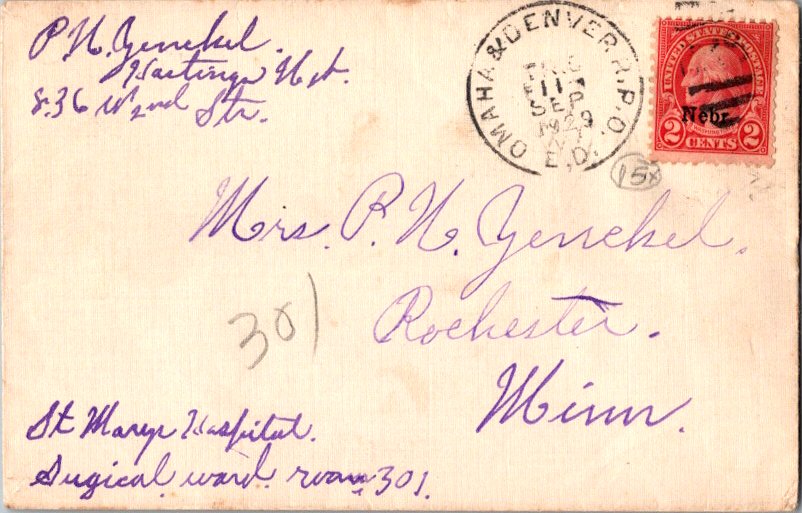 P. H. Yenckel.
Hastings Neb.
836 W 2nd Str.
OMAHA & DENVER R.P.O.
SEP
1929
E.D.
UNITED STATES POSTAGE
Nebr.
2 CENTS 2
15x
Mrs. P. H. Yenckel.
Rochester.
Minn.
301
St Marys Hospital.
Sugical ward. room 301.